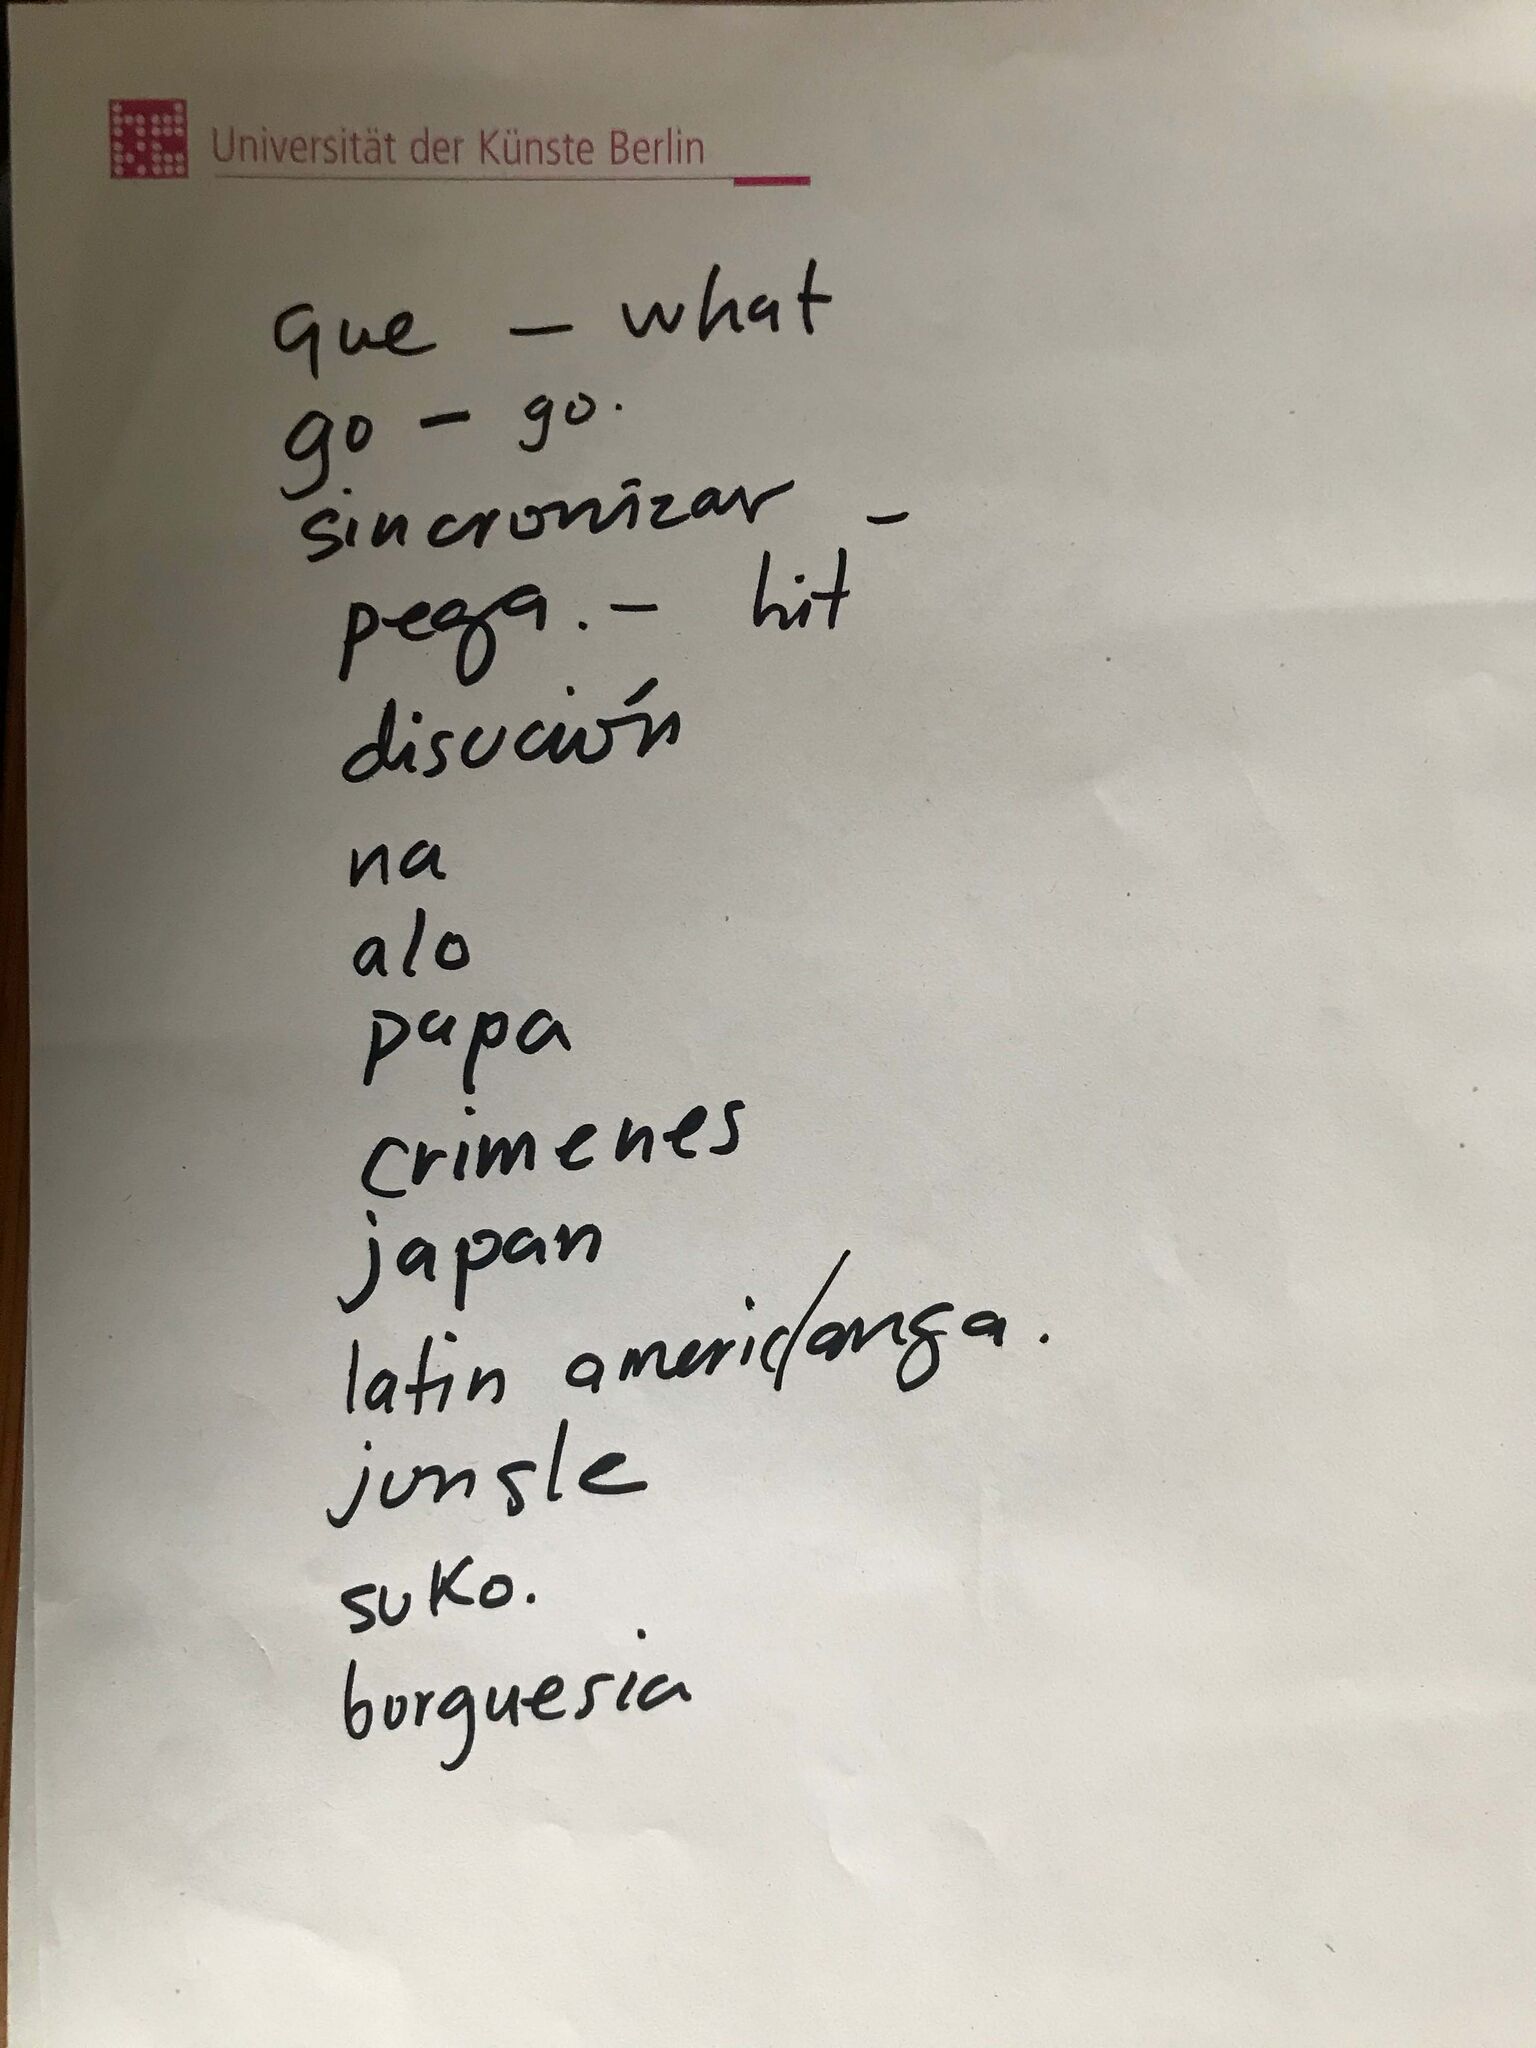 Universität der Künste Berlin
que – what
go – go.
sincronizar –
pega. – hit
disución
na
alo
papa
crimenes
japan
latin americ/anga.
jungle
suko.
borguesia